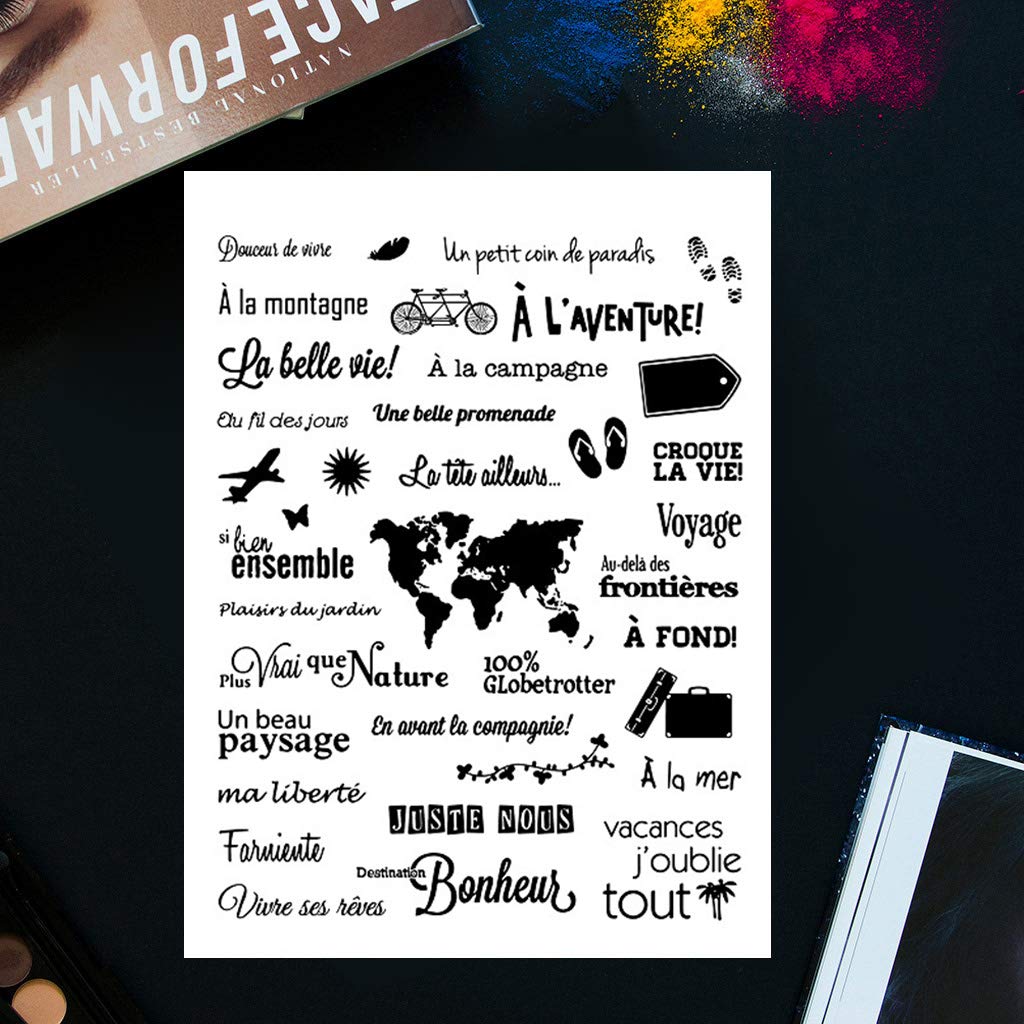 FACE FORWARD
NATIONAL BESTSELLER
Douceur de vivre
Un petit coin de paradis
À la montagne
À L'AVENTURE!
La belle vie!
À la campagne
Au fil des jours
Une belle promenade
La tête ailleurs...
CROQUE
LA VIE!
Voyage
si bien
ensemble
Au-delà des
frontières
Plaisirs du jardin
À FOND!
Plus Vrai que Nature
100%
GLobetrotter
Un beau
paysage
En avant la compagnie!
À la mer
ma liberté
JUSTE NOUS
vacances
j'oublie
tout
Farniente
Destination
Bonheur
Vivre ses rêves